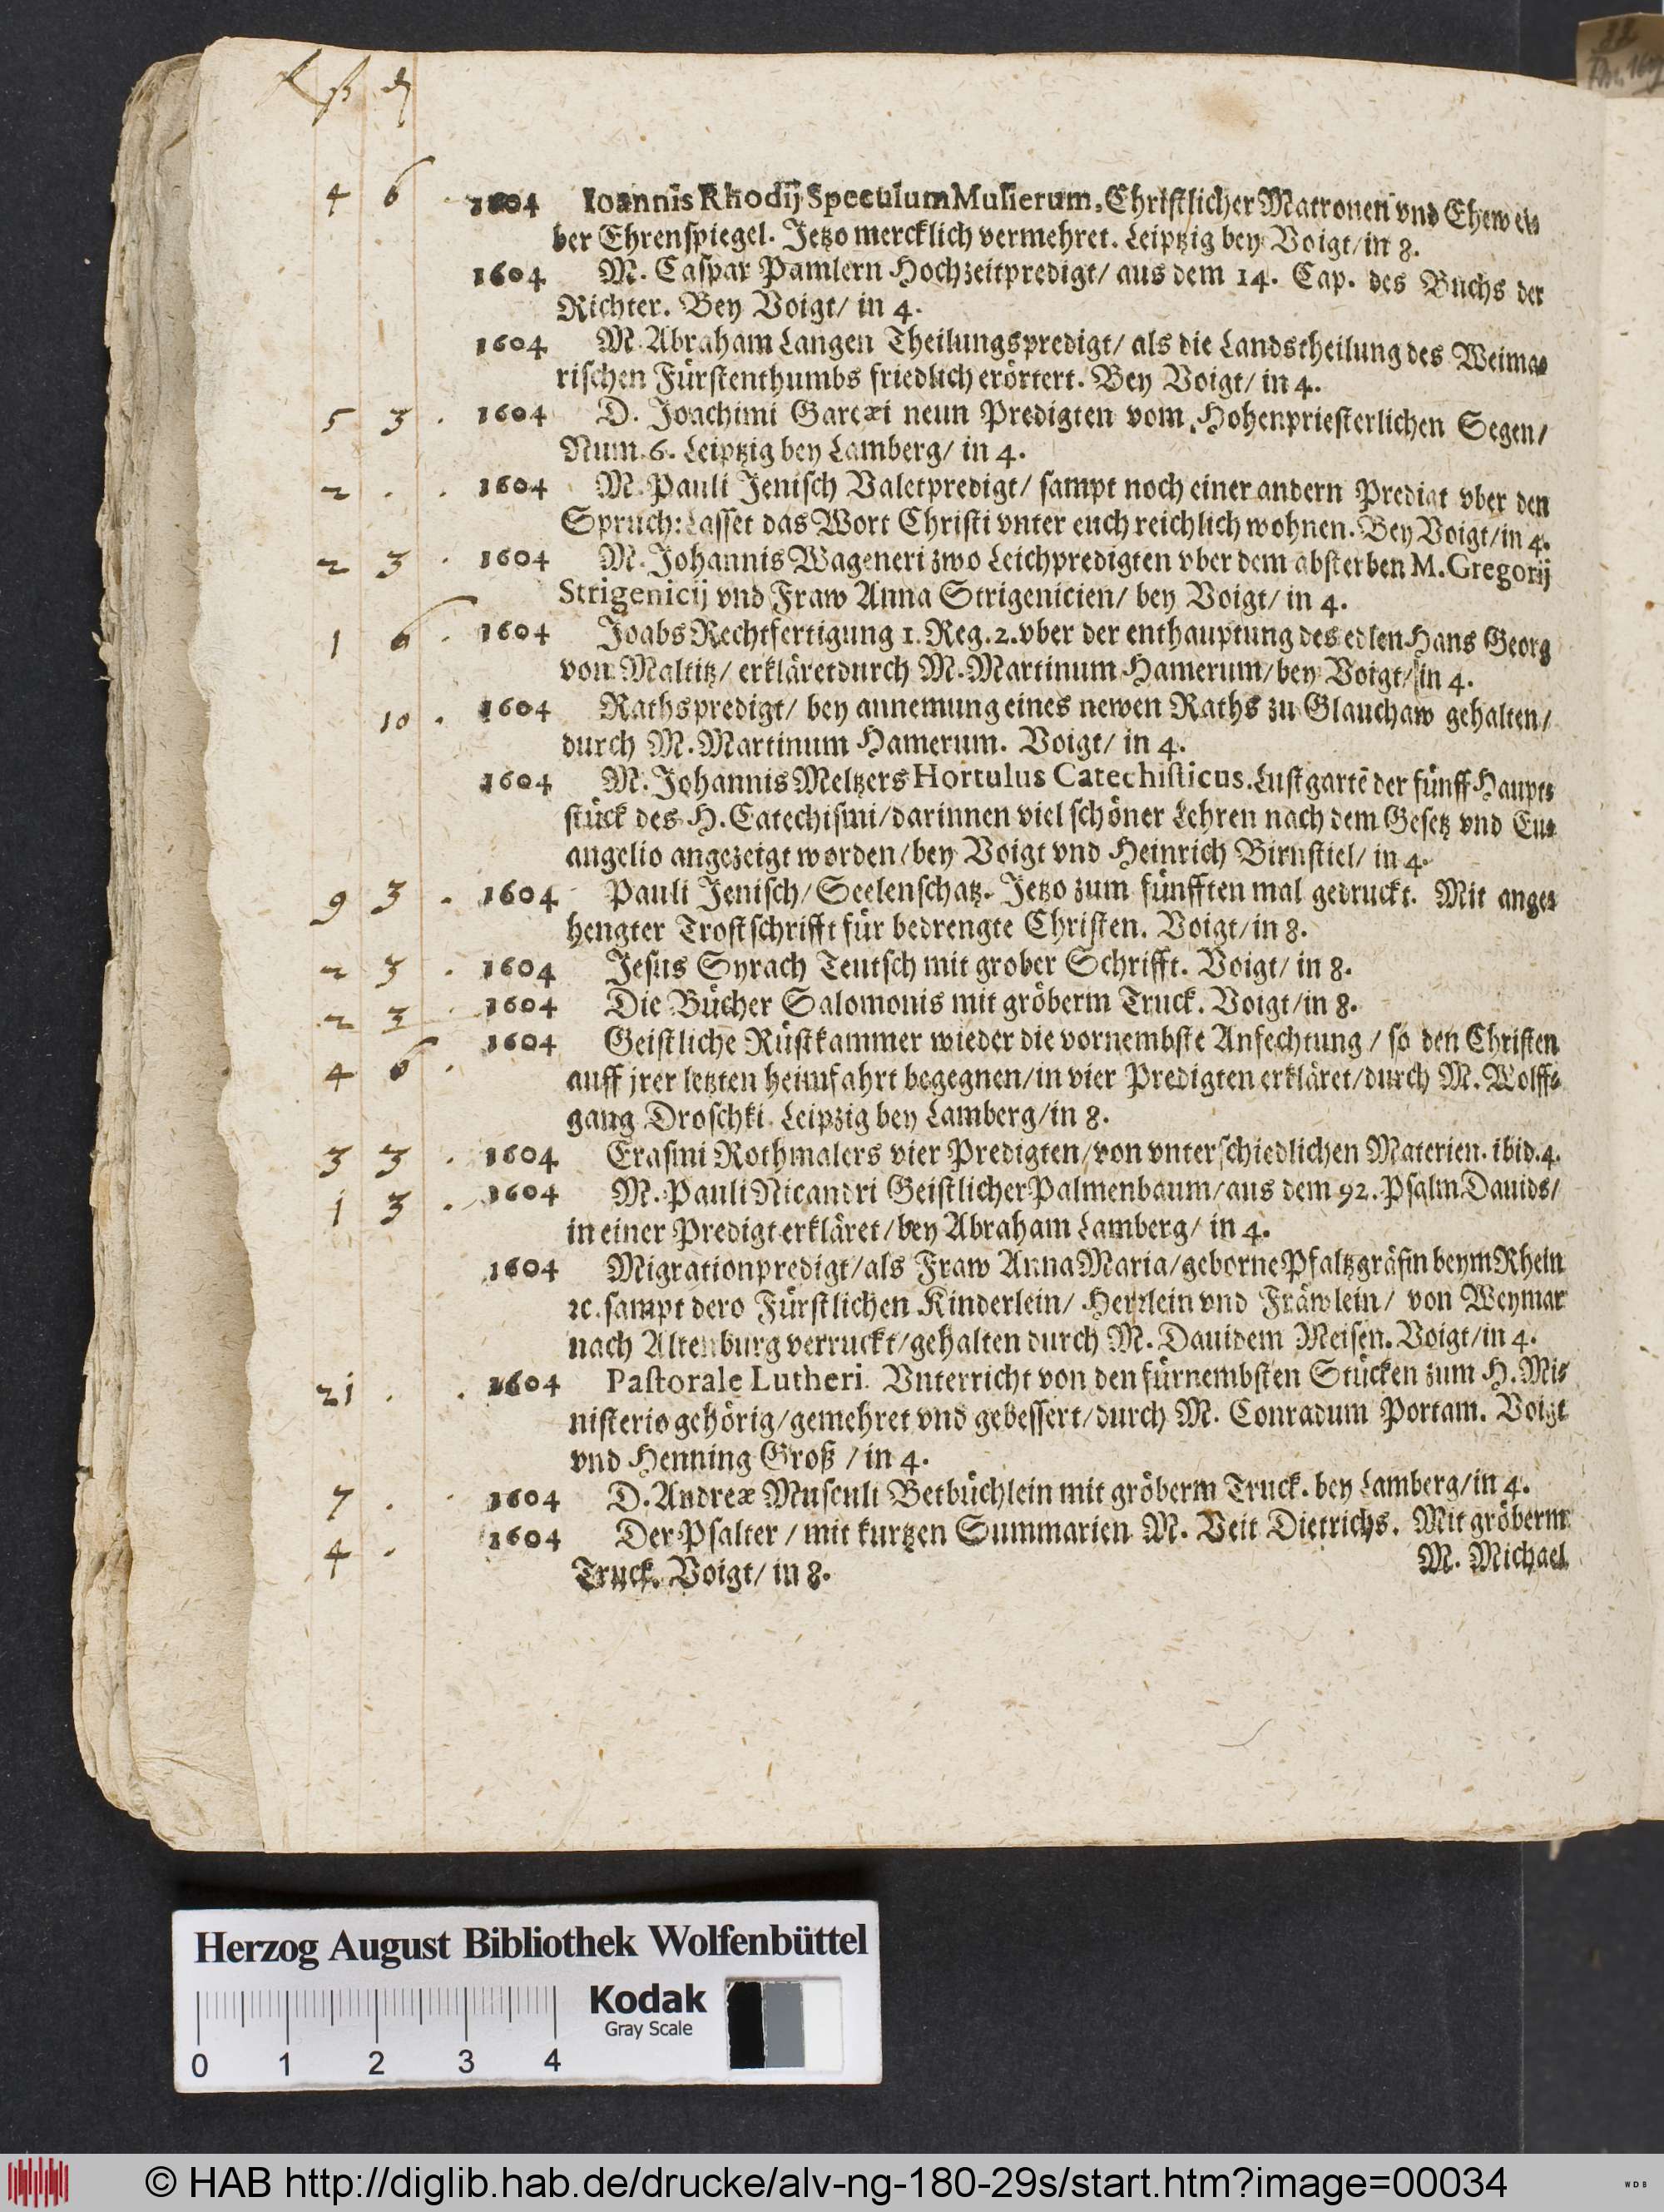 ß ₰
4 6 · 1604 Ioannis Rhodij Speculum Mulierum, Christlicher Matronen vnd Ehewei⸗
ber Ehrenspiegel. Jetzo mercklich vermehret. Leiptzig bey Voigt/ in 8.
1604 M. Caspar Pamlern Hochzeitpredigt/ aus dem 14. Cap. des Buchs der
Richter. Bey Voigt/ in 4.
1604 M. Abraham Langen Theilungspredigt/ als die Landstheilung des Weima⸗
rischen Fürstenthumbs friedlich erörtert. Bey Voigt/ in 4.
5 3 · 1604 D. Joachimi Garcæi neun Predigten vom Hohenpriesterlichen Segen/
Num. 6. Leiptzig bey Lamberg/ in 4.
2 · · 1604 M. Pauli Jenisch Valetpredigt/ sampt noch einer andern Predigt vber den
Spruch: Lasset das Wort Christi vnter euch reichlich wohnen. Bey Voigt/ in 4.
2 3 · 1604 M. Johannis Wageneri zwo Leichpredigten vber dem absterben M. Gregorij
Strigenicij vnd Fraw Anna Strigenicien/ bey Voigt/ in 4.
1 6 · 1604 Joabs Rechtfertigung 1. Reg. 2. vber der enthauptung des edlen Hans Georg
von Maltitz/ erkläret durch M. Martinum Hamerum/ bey Voigt/ in 4.
10 · 1604 Rathspredigt/ bey annemung eines newen Raths zu Glauchaw gehalten/
durch M. Martinum Hamerum. Voigt/ in 4.
1604 M. Johannis Meltzers Hortulus Catechisticus. Lustgartē der fünff Haupt⸗
stück des H. Catechismi/ darinnen viel schöner Lehren nach dem Gesetz vnd Eu⸗
angelio angezeigt worden/ bey Voigt vnd Heinrich Birnstiel/ in 4.
9 3 · 1604 Pauli Jenisch/ Seelenschatz. Jetzo zum fünfften mal gedruckt. Mit ange⸗
hengter Trostschrifft für bedrengte Christen. Voigt/ in 8.
2 3 · 1604 Jesus Syrach Teutsch mit grober Schrifft. Voigt/ in 8.
2 3 · 1604 Die Bücher Salomonis mit gröberm Truck. Voigt/ in 8.
4 6 · 1604 Geistliche Rüstkammer wieder die vornembste Anfechtung/ so den Christen
auff jrer letzten heimfahrt begegnen/ in vier Predigten erkläret/ durch M. Wolff⸗
gang Droschki. Leipzig bey Lamberg/ in 8.
3 3 · 1604 Erasmi Rothmalers vier Predigten/ von vnterschiedlichen Materien. ibid. 4.
1 3 · 1604 M. Pauli Nicandri Geistlicher Palmenbaum/ aus dem 92. Psalm Dauids/
in einer Predigt erkläret/ bey Abraham Lamberg/ in 4.
1604 Migrationpredigt/ als Fraw Anna Maria/ geborne Pfaltzgräfin beym Rhein
ꝛc. sampt dero Fürstlichen Kinderlein/ Herrlein vnd Fräwlein/ von Weymar
nach Altenburg verruckt/ gehalten durch M. Dauidem Meisen. Voigt/ in 4.
21 · · 1604 Pastorale Lutheri. Vnterricht von den fürnembsten Stücken zum H. Mi⸗
nisterio gehörig/ gemehret vnd gebessert/ durch M. Conradum Portam. Voigt
vnd Henning Groß/ in 4.
7 · · 1604 D. Andreæ Musculi Betbüchlein mit gröberm Truck. bey Lamberg/ in 4.
4 · 1604 Der Psalter/ mit kurtzen Summarien M. Veit Dietrichs. Mit gröberm
Truck. Voigt/ in 8.
M. Michael
Herzog August Bibliothek Wolfenbüttel
Kodak
Gray Scale
0 1 2 3 4
© HAB http://diglib.hab.de/drucke/alv-ng-180-29s/start.htm?image=00034
WDB